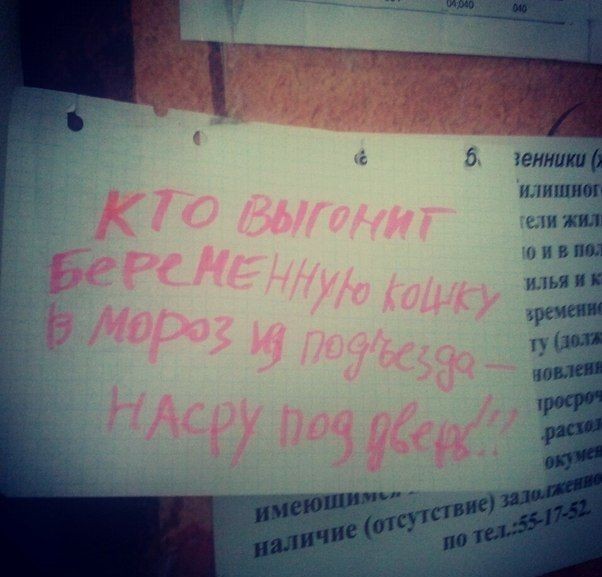 04,040 040
КТО ВЫГОНИТ
БЕРЕМЕННУЮ КОШКУ
В МОРОЗ ИЗ ПОДЪЕЗДА —
НАСРУ ПОД ДВЕРЬ!!!
б.
венники (
илищног
ели жил
о и в по
илья и к
временно
ту (долж
новлен
просроч
расхо
окумен
имеющим
наличие (отсутствие) задолженно
по тел.:55-17-52.